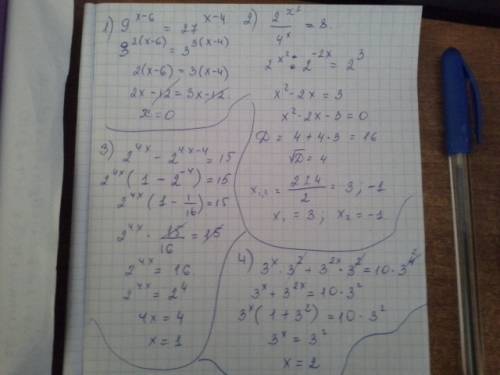 1) 9^(x-6) = 27^(x-4)
3^(2(x-6)) = 3^(3(x-4))
2(x-6) = 3(x-4)
2x - 12 = 3x - 12.
x = 0
2) 2^(x²) / 4^x = 8.
2^(x²) : 2^(-2x) = 2³
x² - 2x = 3
x² - 2x - 3 = 0
D = 4 + 4·3 = 16
√D = 4
x₁,₂ = (2±4)/2 = 3; -1
x₁ = 3; x₂ = -1
3) 2^(4x) - 2^(4x-4) = 15
2^(4x) (1 - 2^(-4)) = 15
2^(4x) (1 - 1/16) = 15
2^(4x) · 15/16 = 15
2^(4x) = 16
2^(4x) = 2⁴
4x = 4
x = 1
4) 3^x · 3² + 3^(2x) · 3² = 10 · 3^4 2
3^x + 3^(2x) = 10 · 3²
3^x (1 + 3²) = 10 · 3²
3^x = 3²
x = 2